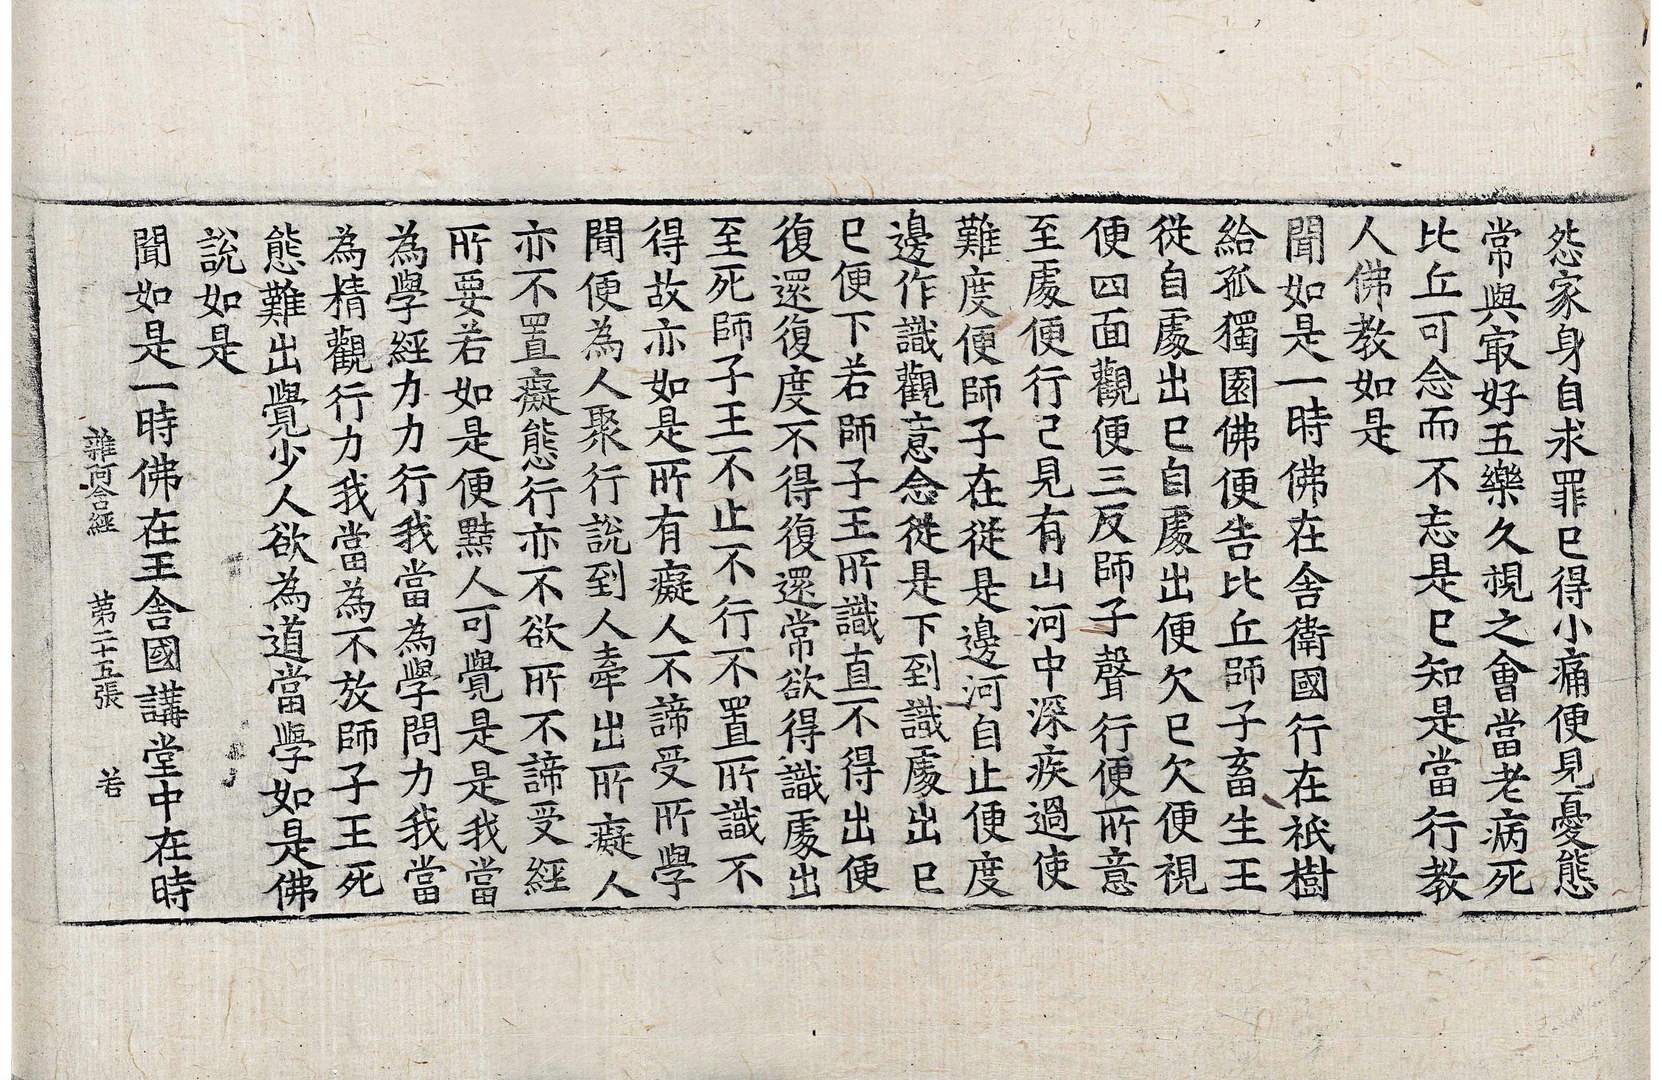 怨家身自求罪已得小痛便見憂態
常與㝡好五樂久視之會當老病死
比丘可念而不忘是已知是當行教
人佛教如是
聞如是一時佛在舍衛國行在祇樹
給孤獨園佛便告比丘師子畜生王
從自處出已自處出便欠已欠便視
便四面觀便三反師子聲行便所意
至處便行已見有山河中深疾過使
難度便師子在從是邊河自止便度
邊作識觀意念從是下到識處出已
已便下若師子王所識直不得出便
復還復度不得復還常欲得識處出
至死師子王不止不行不置所識不
得故亦如是所有癡人不諦受所學
聞便為人聚行說到人牽出所癡人
亦不置癡態行亦不欲所不諦受經
所要若如是便黠人可覺是是我當
為學經力力行我當為學問力我當
為精觀行力我當為不放師子王死
態難出覺少人欲為道當學如是佛
說如是
聞如是一時佛在王舍國講堂中在時
雜阿含經　第二十五張　若